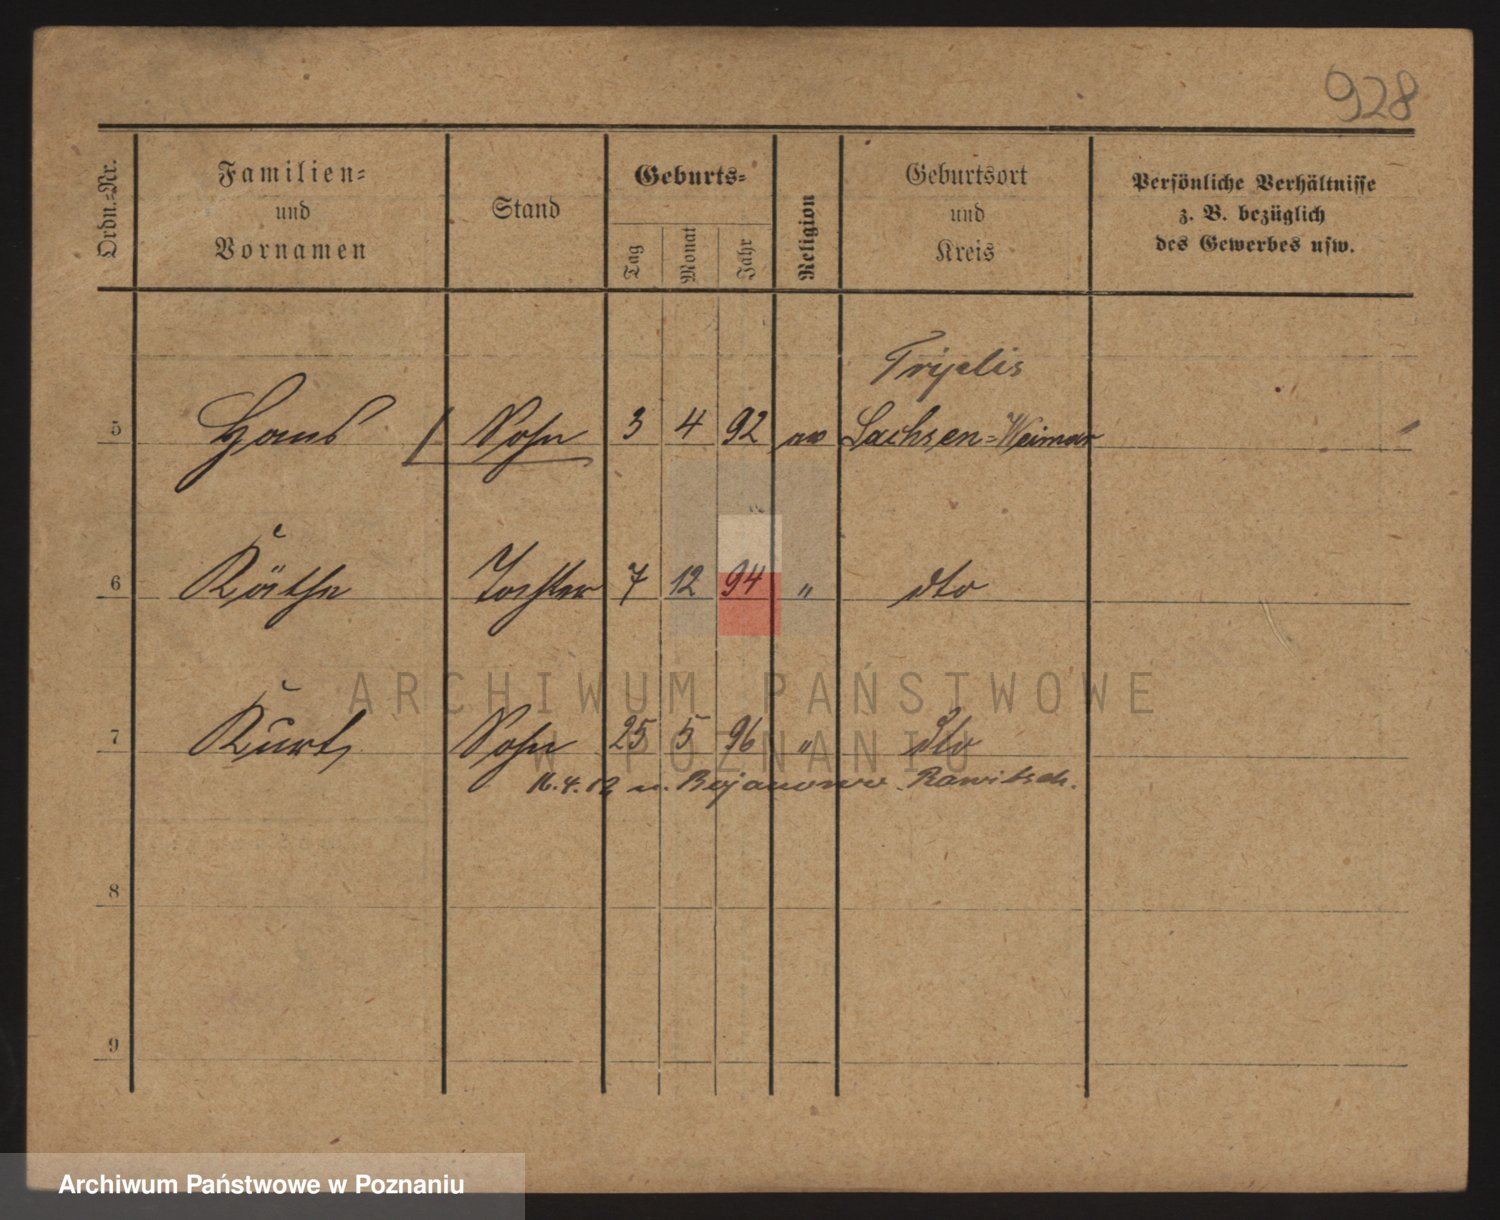 928
Ordn.-Nr.
Familien-
und
Vornamen
Stand
Geburts-
Tag
Monat
Jahr
Religion
Geburtsort
und
Kreis
Persönliche Verhältnisse
z. B. bezüglich
des Gewerbes usw.
Triptis
5 Hans Sohn 3 4 92 ev Sachsen=Weimar
6 Käthe Tochter 7 12 94 " dto
7 Kurt Sohn 25 5 96 " dto
16.4.12 n. Bojanowo Rawitsch.
8
9
ARCHIWUM PAŃSTWOWE
W POZNANIU
Archiwum Państwowe w Poznaniu